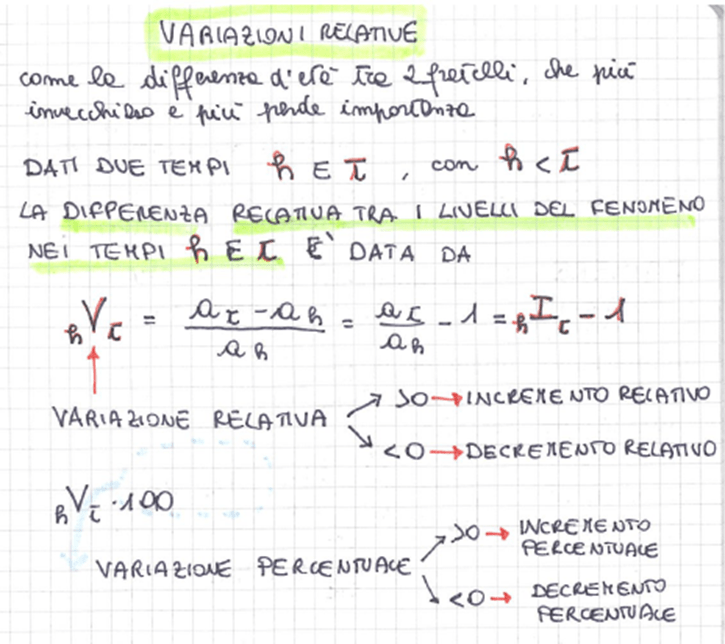 VARIAZIONI RELATIVE
come la differenza d'età tra 2 fratelli, che più
invecchiano e più perde importanza
DATI DUE TEMPI h E t , con h < t
LA DIFFERENZA RELATIVA TRA I LIVELLI DEL FENOMENO
NEI TEMPI h E t E' DATA DA
hVt = (at - ah)/ah = at/ah - 1 = hIt - 1
VARIAZIONE RELATIVA
>0 → INCREMENTO RELATIVO
<0 → DECREMENTO RELATIVO
hVt · 100
VARIAZIONE PERCENTUALE
>0 → INCREMENTO
PERCENTUALE
<0 → DECREMENTO
PERCENTUALE